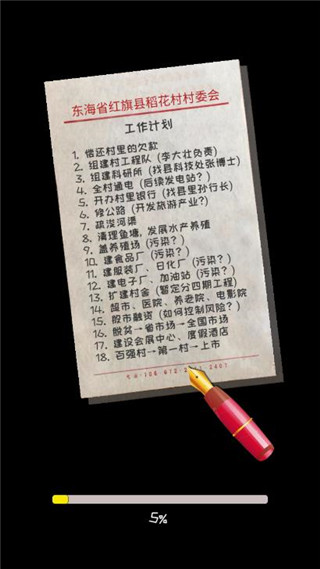 东海省红旗县稻花村村委会
工作计划
1. 偿还村里的欠款
2. 组建村工程队（李大壮负责）
3. 组建科研所（找县科技处张博士）
4. 全村通电（后续发电站？）
5. 开办村里银行（找县里孙行长）
6. 修公路（开发旅游产业？）
7. 疏浚河渠
8. 清理鱼塘，发展水产养殖
9. 盖养殖场（污染？）
10. 建食品厂（污染？）
11. 建服装厂、日化厂（污染？）
12. 建电子厂、加油站（污染？）
13. 扩建村舍（暂定分四期工程）
14. 超市、医院、养老院、电影院
15. 股市融资（如何控制风险？）
16. 脱贫→省市场→全国市场
17. 建设会展中心、度假酒店
18. 百强村→第一村→上市
5%